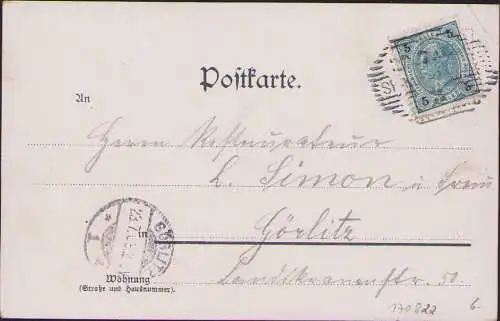 5 5
5 5
Postkarte.
An
Herrn Restaurateur
L. Simon u Frau
GÖRLITZ
in Görlitz
1
Wohnung
(Straße und Hausnummer).
Landskronenstr. 50
170822 6.